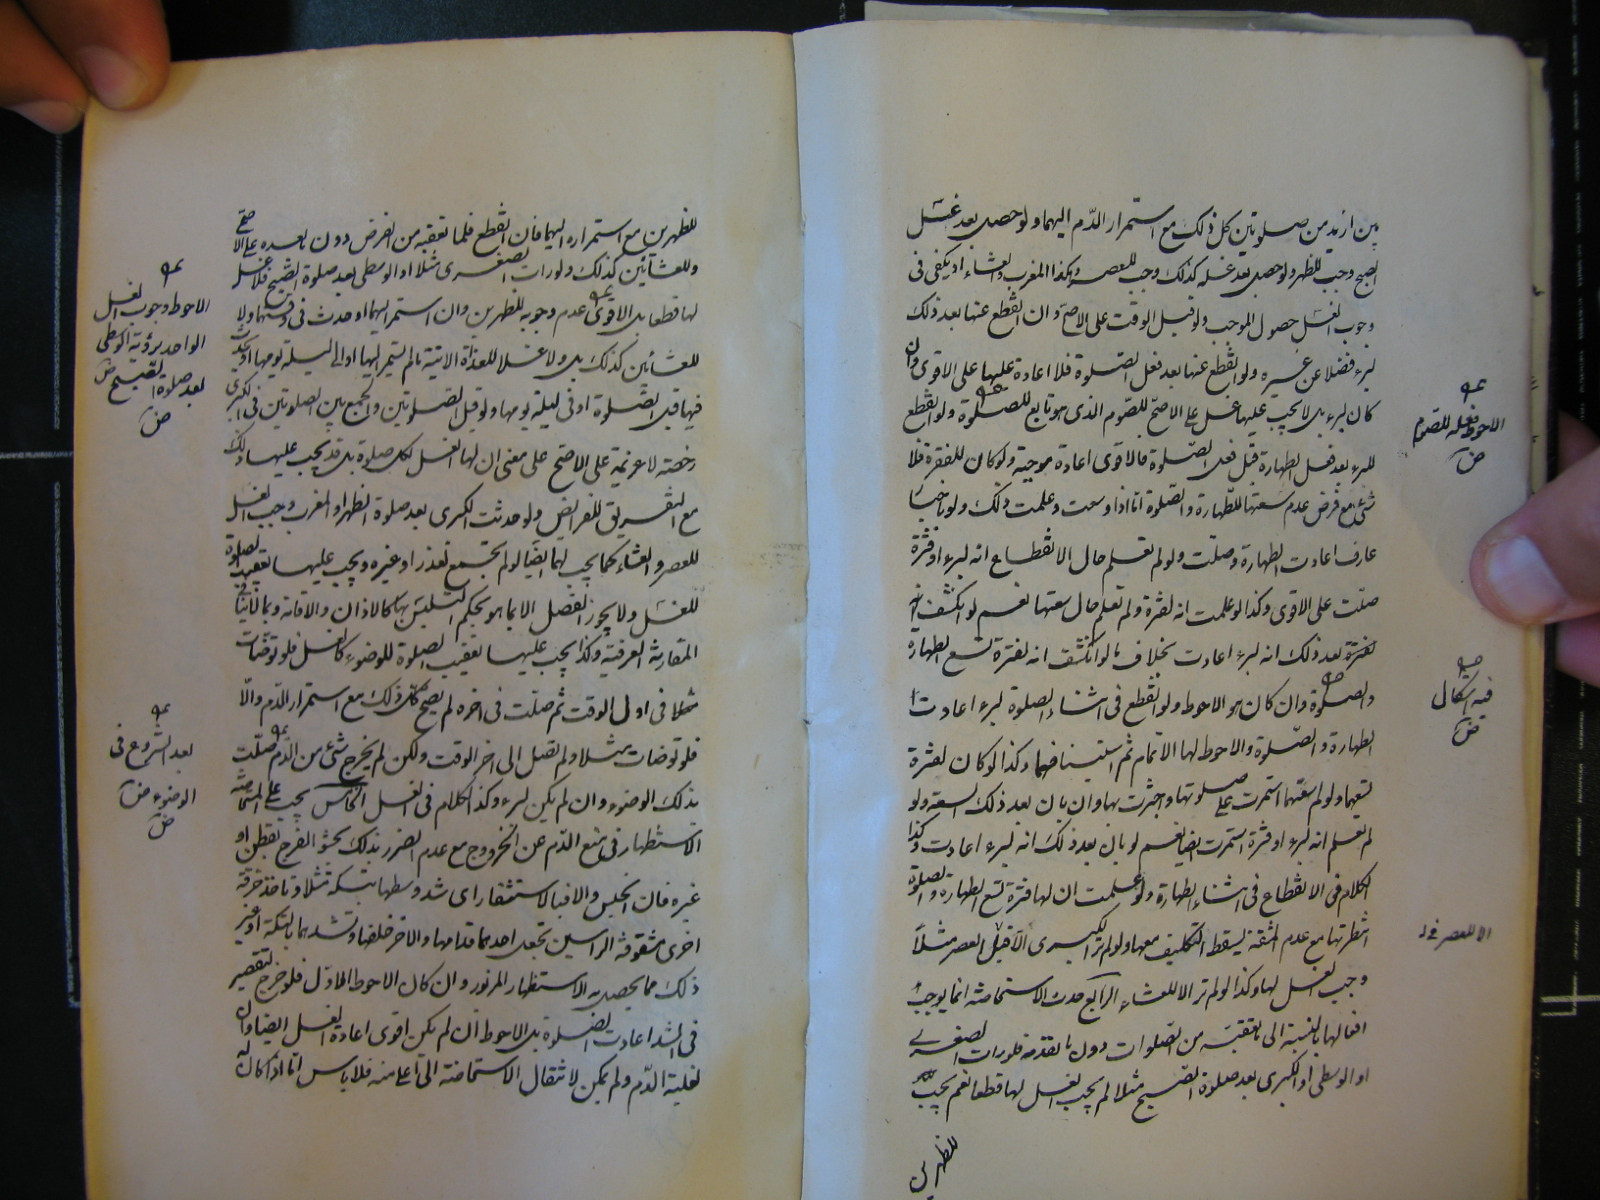 بين ازيد من صلوتين كل ذلك مع استمرار الدّم اليهما ولو حصل بعد غسل
الصبح وجب للظهر ولو حصل بعد غسله كذلك وجب للعصر وهكذا المغرب والعشاء او يكفى فى
وجوب الغسل حصول الموجب ولو قبل الوقت على الاصح وان انقطع عنها بعد ذلك
لبرء فضلا عن غيره ولو انقطع عنها بعد فعل الصّلوة فلا اعادة عليها على الاقوى وان
كان لبرء بل لا يجب عليها غسل على الاصحّ للصّوم الذى هو تابع للصّلوة ولو انقطع
للبرء بعد فعل الطهارة قبل فعل الصّلوة فالاقوى اعادة موجبة ولو كان للفترة فلا
شئ مع فرض عدم سعتها للطّهارة والصّلوة امّا اذا وسعت وعلمت ذلك ولو باخبار
عارف اعادت الطهارة وصلّت ولو لم تعلم حال الانقطاع انه لبرء او فترة
صلّت على الاقوى وكذا لو علمت انه لفترة ولم تعلم حال سعتها نعم لو انكشف
بعد ذلك انه لبرء اعادت بخلاف ما لو انكشف انه لفترة تسع الطهارة
والصلوة وان كان هو الاحوط ولو انقطع فى اثناء الصلوة لبرء اعادت
الطهارة والصّلوة والاحوط لها الاتمام ثم استينافهما وكذا لو كان لفترة
تسعهما ولو لم تسعهما استمرت على صلوتها واجتزت بها وان بان بعد ذلك السعة ولو
لم تعلم انه لبرء او فترة استمرت ايضا نعم لو بان بعد ذلك انه لبرء اعادت وكذا
الكلام فى الانقطاع فى اثناء الطهارة ولو علمت ان لها فترة تسع الطهارة والصلوة
انتظرتها مع عدم المشقة ليسقط التكليف معها ولو لم تر الكبرى الّا قبل العصر مثلاً
وجب الغسل لها وكذا لو لم تر الا للعشاء الرابع حدث الاستحاضة انما يوجب
افعالها بالنسبة الى ما تعقبه من الصّلوات دون ما تقدمه فلو رات الصغرى
او الوسطى او الكبرى بعد صلوة الصّبح مثلا لم يجب الغسل لها قطعا نعم يجب
للظهرين
الاحوط فعله للصّوم
فيه اشكال
الا للعصر
للظهرين مع استمراره اليهما فان انقطع فلما تعقبه من الفرض دون ما بعده على الاصح
وللعشائين كذلك ولو رات الصغرى مثلا او الوسطى بعد صلوة الصّبح فلا غسل
لها قطعا بل الاقوى عدم وجوبه للظهرين وان استمر اليهما او حدث فى وقتهما ولا
للعشائين كذلك بل ولا غسلا للغداة الاتية ما لم يستمر اليها او الى ليلة يومها او يحدث
فيها قبل الصّلوة او فى ليلة يومها ولو قبل الصّلوتين والجمع بين الصلوتين فى الكبرى
رخصة لا عزيمة على الاصح على معنى ان لها الغسل لكل صلوة بل قد يجب عليها ذلك
مع التفريق للفرائض ولو حدثت الكبرى بعد صلوة الظهر او المغرب وجب الغسل
للعصر والعشاء كما يجب لهما ايضا لو لم تجمع لعذر او غيره ويجب عليها تعقيب الصلوة
للغسل ولا يجوز الفصل الا بما هو بحكم التلبس بها كالاذان والاقامة وبما لا ينافى
المقارنة العرفية وكذا يجب عليها تعقيب الصلوة للوضوء كالغسل فلو توضأت
مثلا فى اول الوقت ثم صلّت فى اخره لم يصح كل ذلك مع استمرار الدّم والّا
فلو توضات مثلا ولم تصل الى اخر الوقت ولكن لم يخرج شئ من الدّم صلّت
بذلك الوضوء وان لم يكن لبرء وكذا الكلام فى الغسل الخامس يجب على المستحاضة
الاستظهار فى منع الدّم عن الخروج مع عدم الضرر بذلك بحشو الفرج بقطن او
غيره فان انحبس والا فبالاستثفار اى شد وسطها بتكة مثلا وتاخذ خرقة
اخرى مشقوقة الراسين تجعل احدهما قدامها والاخر خلفها وتشدهما بالتكة او غير
ذلك مما يحصل به الاستظهار المزبور وان كان الاحوط الاول فلو خرج لتقصير
فى الشد اعادت الصّلوة بل الاحوط ان لم يكن اقوى اعادة الغسل ايضا وان
لغلبة الدّم ولم يمكن لانتقال الاستحاضة الى اعلى منه فلا باس امّا اذا كان له
الاحوط وجوب الغسل
الواحد برؤية الوسطى
بعد صلوة الصّبح
بعد الشروع فى
الوضوء